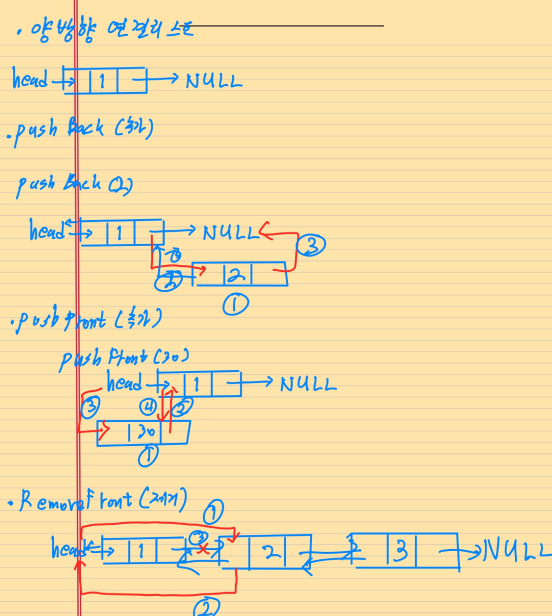 · 양방향 연결리스트
head 1 NULL
· push Back (추가)
push Back (2)
head 1 NULL ③
② 2
①
· push Front (추가)
push Front (30)
head 1 NULL
③ ④ ②
30
①
· Remove Front (제거)
①
head 1 ③ 2 3 NULL
②